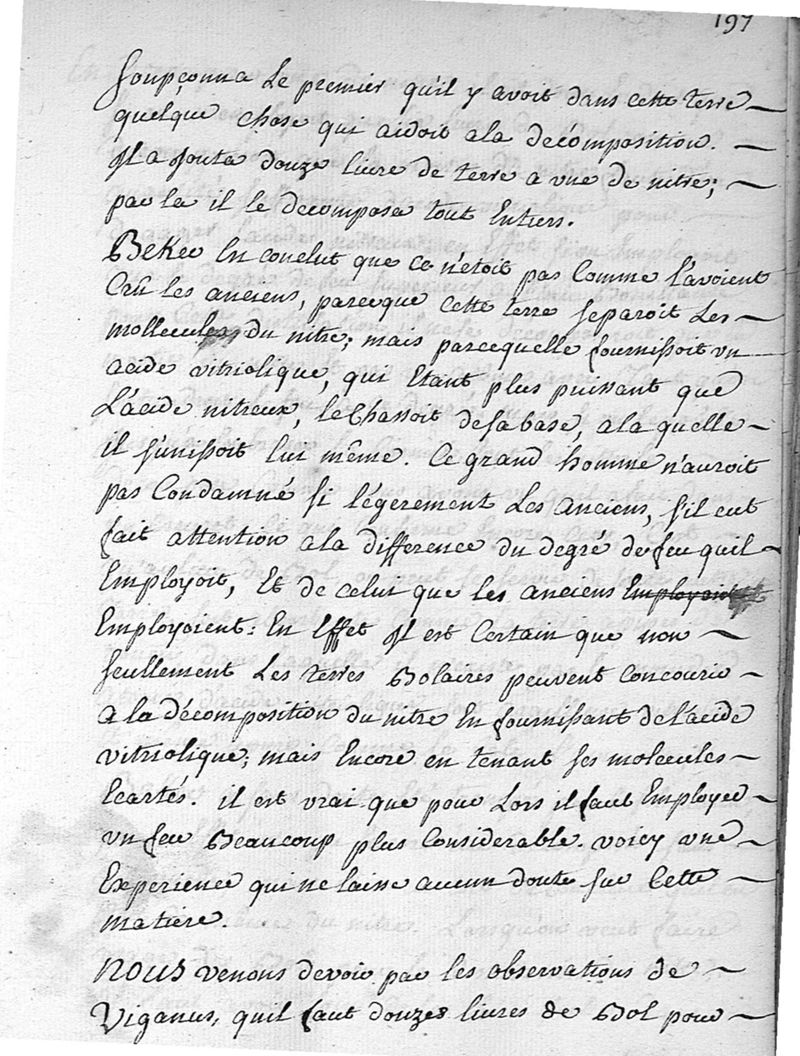 197
soupçonna le premier qu'il y avoit dans cette terre
quelque chose qui aidoit a la decomposition.
Il a jouta douze livre de terre a vne de nitre;
par la il le decomposa tout Entiers.
Beker En conclut que ce n'etoit pas comme l'avoient
Crû les anciens, parceque cette terre separoit Les
mollecules du nitre; mais parcequelle fournissoit vn
acide vitriolique, qui Etant plus puissant que
L'acide nitreux, le Chassoit de sa base, a la quelle
il s'unissoit lui même. Ce grand homme n'auroit
pas Condamné si légerement Les Anciens, s'il eut
fait attention a la difference du degré de feu quil
Employoit, Et de celui que les anciens Employoient
Employoient: En Effet Il est Certain que non
seullement Les terres Bolaires peuvent Concourir
a la décomposition du nitre En fournissant de l'acide
vitriolique; mais Encore en tenant ses molecules
Ecartés. il est vrai que pour Lors il faut Employer
vn feu Beaucoup plus Considerable. voicy vne
Experience qui ne laisse aucun doute sur Cette
matiere.
Nous venons de voir par les observations de
Viganus, quil faut douzes livres de Bol pour